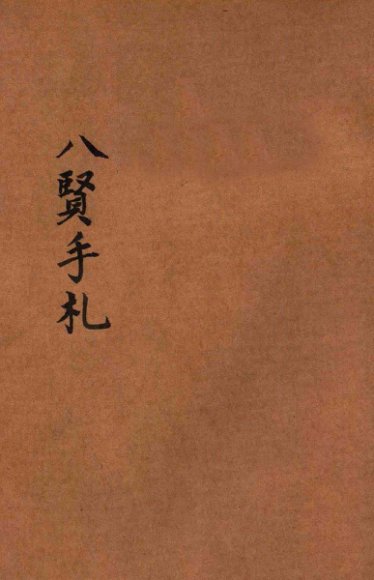 八賢手札